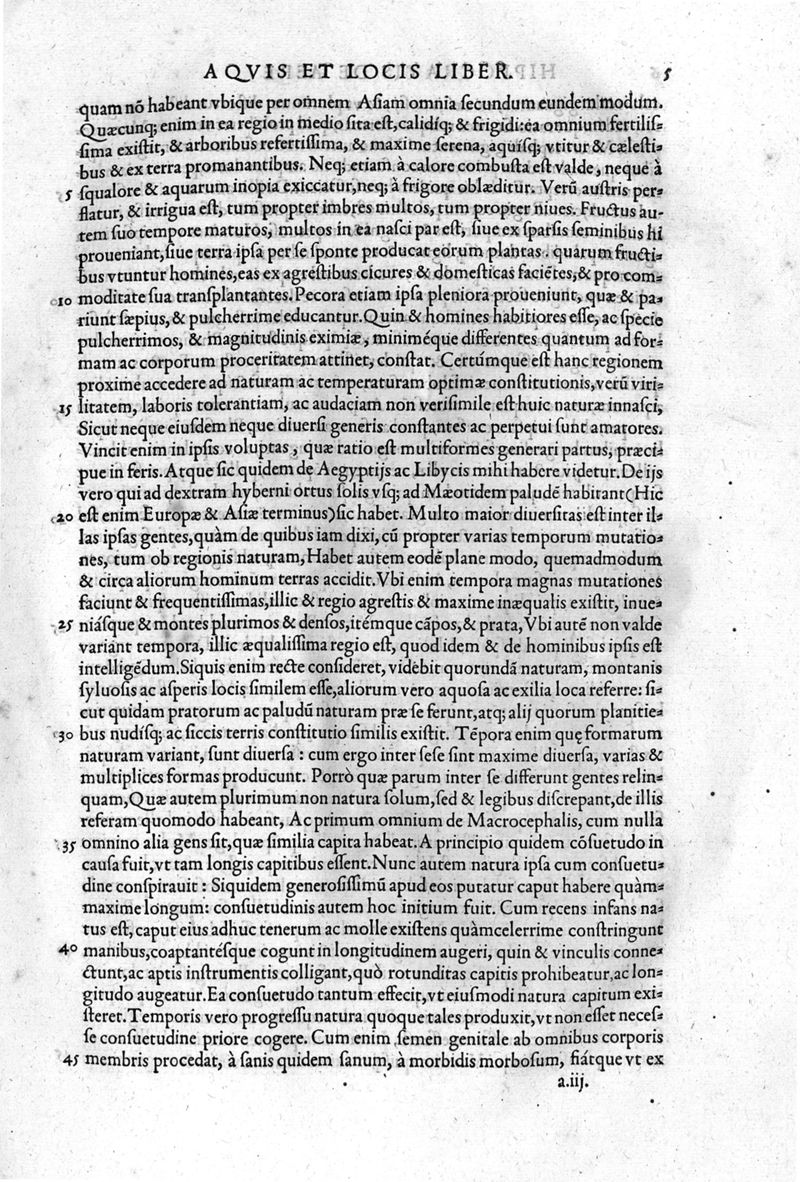 AQVIS ET LOCIS LIBER. 5
quam nō habeant vbique per omnem Aſiam omnia ſecundum eundem modum.
Quæcunq; enim in ea regio in medio ſita eſt, calidíſq; & frigidi: ea omnium fertiliſ-
ſima exiſtit, & arboribus refertiſſima, & maxime ſerena, aquíſq; vtitur & cæleſti-
bus & ex terra promanantibus. Neq; etiam à calore combuſta eſt valde, neque à
5 ſqualore & aquarum inopia exiccatur, neq; à frigore oblæditur. Verū auſtris per-
flatur, & irrigua eſt, tum propter imbres multos, tum propter niues. Fructus au-
tem ſuo tempore maturos, multos in ea naſci par eſt, ſiue ex ſparſis ſeminibus hi
proueniant, ſiue terra ipſa per ſe ſponte producat eorum plantas. quarum fructi-
bus vtuntur homines, eas ex agreſtibus cicures & domeſticas faciētes, & pro com-
10 moditate ſua tranſplantantes. Pecora etiam ipſa pleniora proueniunt, quæ & pa-
riunt ſæpius, & pulcherrime educantur. Quin & homines habitiores eſſe, ac ſpecie
pulcherrimos, & magnitudinis eximiæ, miniméque differentes quantum ad for-
mam ac corporum proceritatem attinet, conſtat. Certúmque eſt hanc regionem
proxime accedere ad naturam ac temperaturam optimæ conſtitutionis, verū viri-
15 litatem, laboris tolerantiam, ac audaciam non veriſimile eſt huic naturæ innaſci,
Sicut neque eiuſdem neque diuerſi generis conſtantes ac perpetui ſunt amatores.
Vincit enim in ipſis voluptas, quæ ratio eſt multiformes generari partus, præci-
pue in feris. Atque ſic quidem de Aegyptijs ac Libycis mihi habere videtur. De ijs
vero qui ad dextram hyberni ortus ſolis vſq; ad Mæotidem paludē habitant (Hic
20 eſt enim Europæ & Aſiæ terminus) ſic habet. Multo maior diuerſitas eſt inter il-
las ipſas gentes, quàm de quibus iam dixi, cū propter varias temporum mutatio-
nes, tum ob regionis naturam, Habet autem eodē plane modo, quemadmodum
& circa aliorum hominum terras accidit. Vbi enim tempora magnas mutationes
faciunt & frequentiſſimas, illic & regio agreſtis & maxime inæqualis exiſtit, inue-
25 niáſque & montes plurimos & denſos, itémque cāpos, & prata, Vbi autē non valde
variant tempora, illic æqualiſſima regio eſt, quod idem & de hominibus ipſis eſt
intelligēdum. Siquis enim recte conſideret, videbit quorundā naturam, montanis
ſyluoſis ac aſperis locis ſimilem eſſe, aliorum vero aquoſa ac exilia loca referre: ſi-
cut quidam pratorum ac paludū naturam præ ſe ferunt, atq; alij quorum planitie-
30 bus nudíſq; ac ſiccis terris conſtitutio ſimilis exiſtit. Tēpora enim quę formarum
naturam variant, ſunt diuerſa: cum ergo inter ſeſe ſint maxime diuerſa, varias &
multiplices formas producunt. Porrò quæ parum inter ſe differunt gentes relin-
quam, Quæ autem plurimum non natura ſolum, ſed & legibus diſcrepant, de illis
referam quomodo habeant, Ac primum omnium de Macrocephalis, cum nulla
35 omnino alia gens ſit, quæ ſimilia capita habeat. A principio quidem cōſuetudo in
cauſa fuit, vt tam longis capitibus eſſent. Nunc autem natura ipſa cum conſuetu-
dine conſpirauit: Siquidem generoſiſſimū apud eos putatur caput habere quàm-
maxime longum: conſuetudinis autem hoc initium fuit. Cum recens infans na-
tus eſt, caput eius adhuc tenerum ac molle exiſtens quàmcelerrime conſtringunt
40 manibus, coaptantéſque cogunt in longitudinem augeri, quin & vinculis conne-
ctunt, ac aptis inſtrumentis colligant, quò rotunditas capitis prohibeatur, ac lon-
gitudo augeatur. Ea conſuetudo tantum effecit, vt eiuſmodi natura capitum exi-
ſteret. Temporis vero progreſſu natura quoque tales produxit, vt non eſſet neceſ-
ſe conſuetudine priore cogere. Cum enim ſemen genitale ab omnibus corporis
45 membris procedat, à ſanis quidem ſanum, à morbidis morboſum, fiátque vt ex
a.iij.